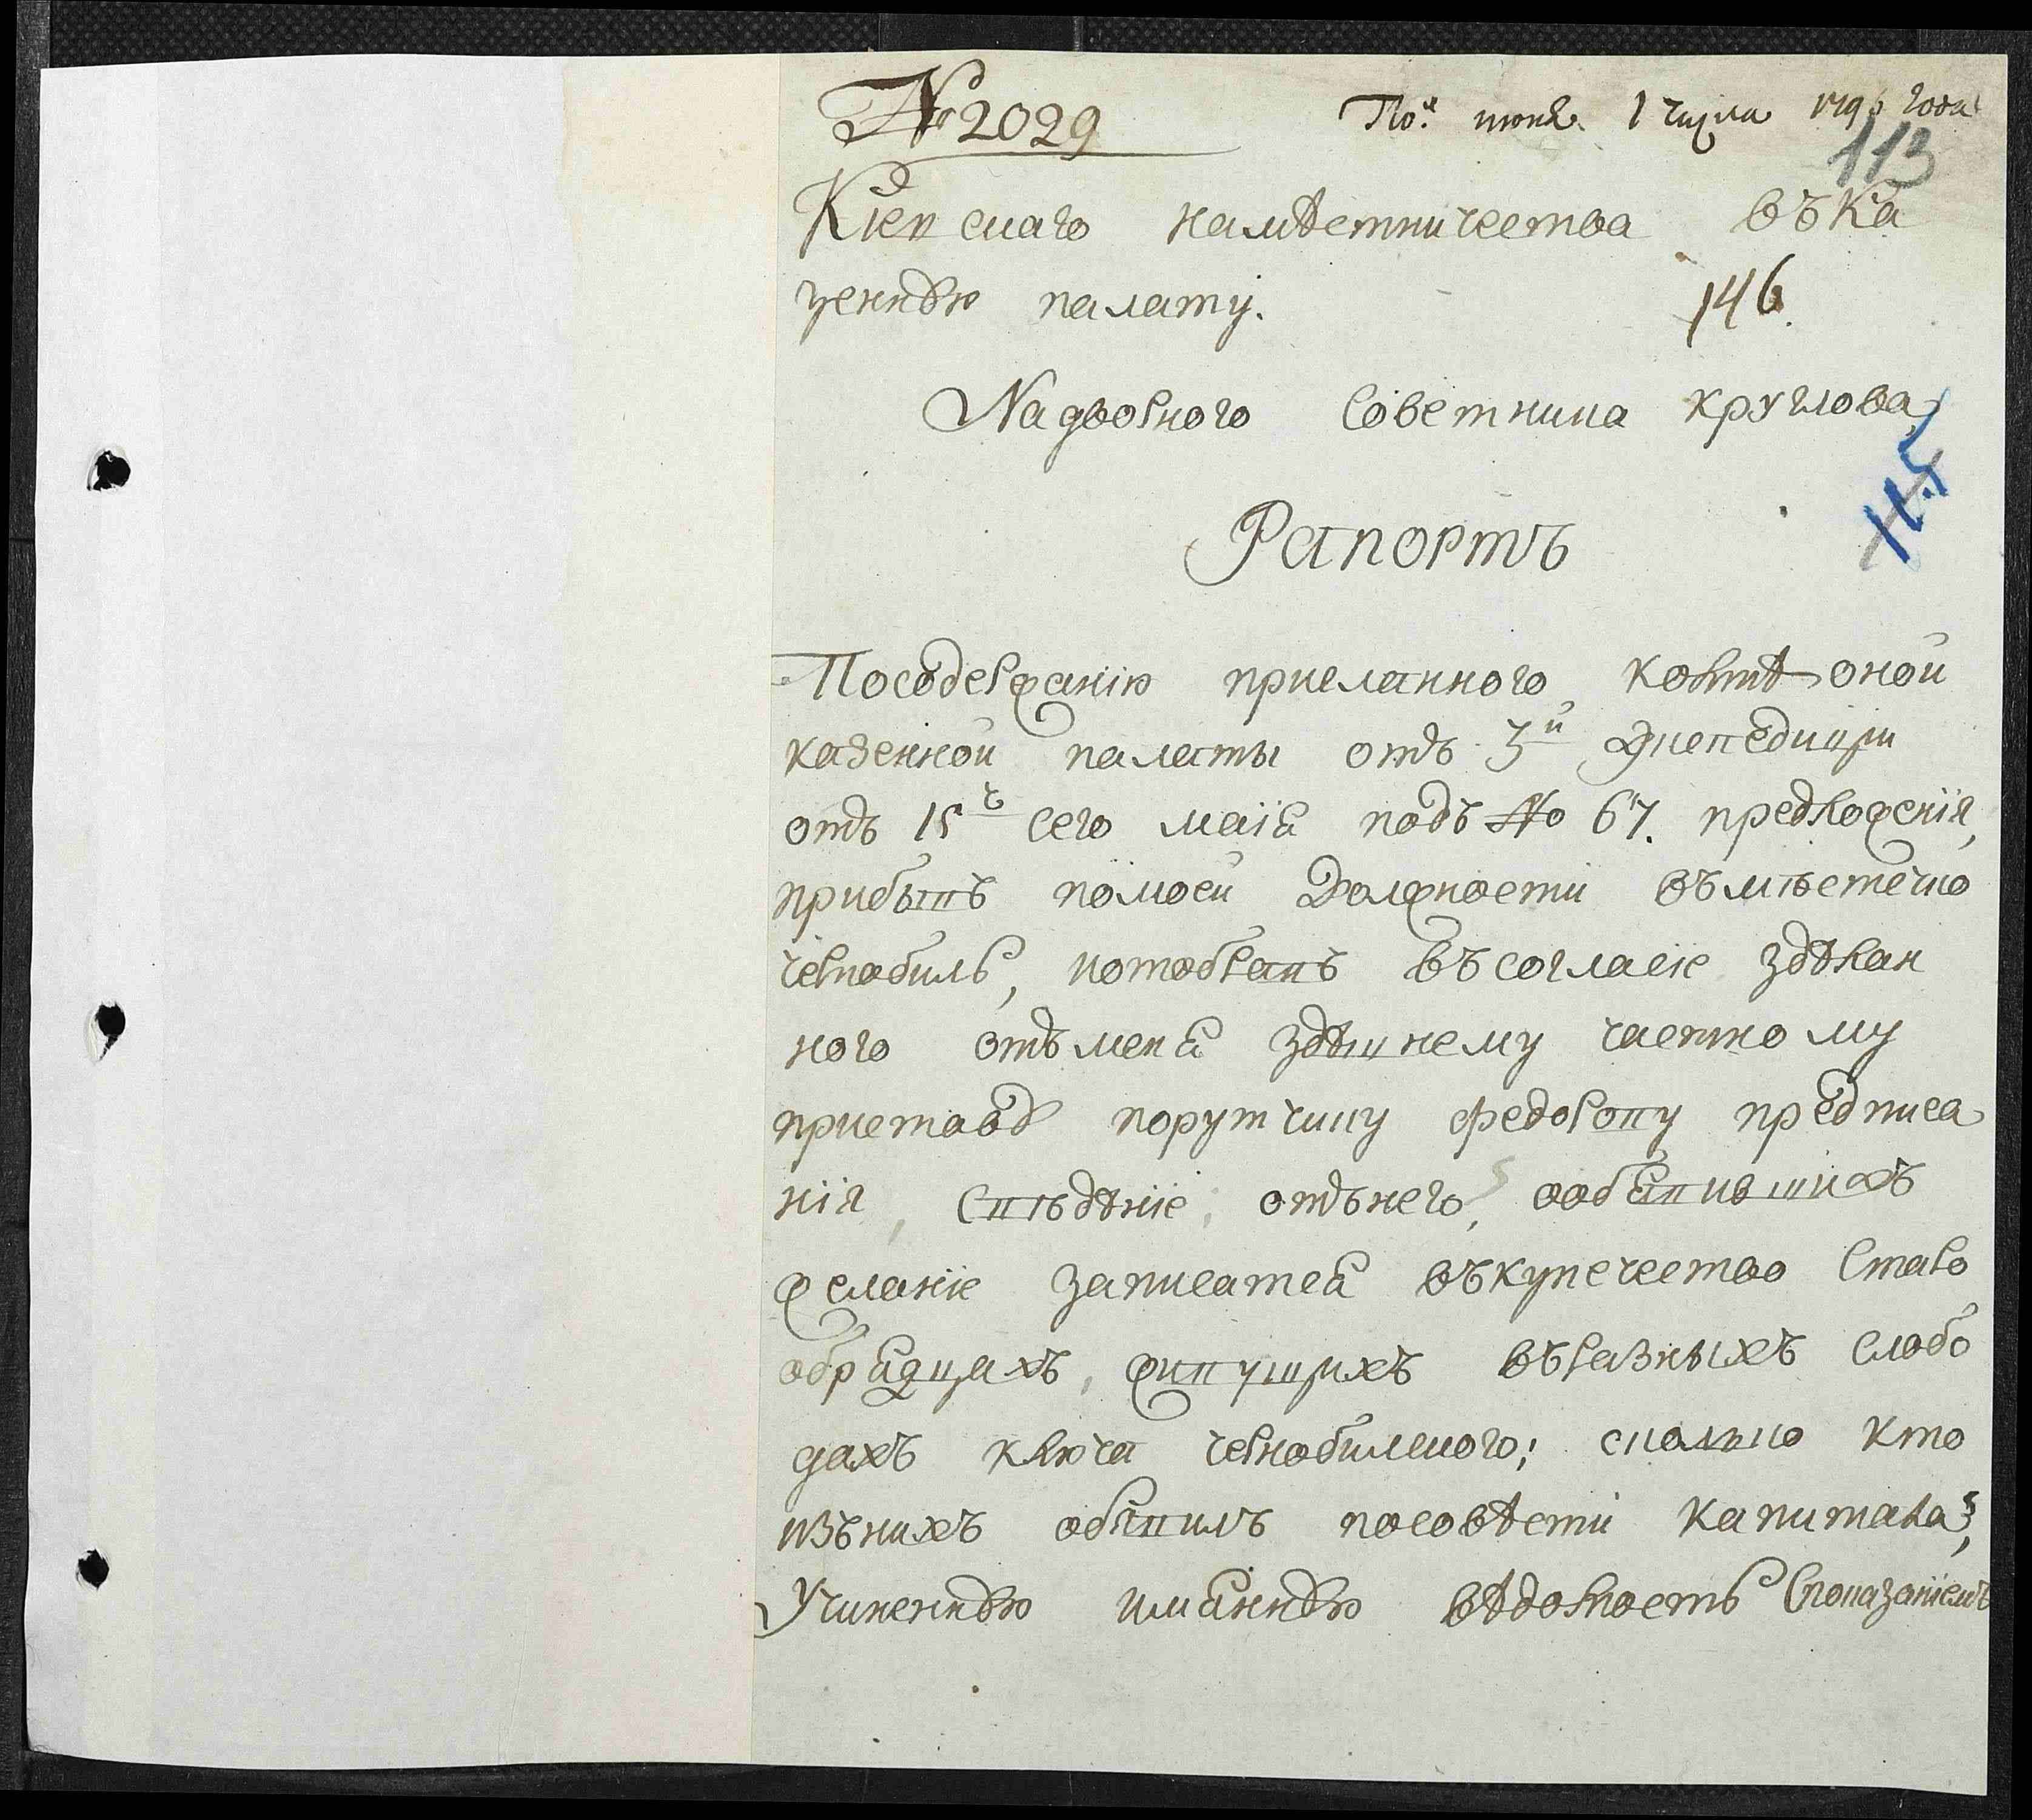 № 2029
По: июня 1 числа 1796 года
113
Киевскаго наместничества въ Ка
зенную палату.
146.
Надворного советника круглова,
115
Рапортъ
По содержанию присланного ко мнѣ оной
казенной палаты отъ 3й Экспедиции
отъ 15г сего маия подъ № 67. предложения,
прибывъ по моей должности въ мѣстечко
чернобиль, и отобравъ въ согласие здѣлан
ного отъ меня здѣшнему частному
приставу порутчику федорову предписа
ния, свѣдѣние отъ него, о обявившихъ
желание записатся въ купечество старо
обрядцахъ, живущихъ въ разныхъ слобо
дахъ ключа чернобилского; сколько кто
изъ нихъ обявилъ по совѣсти капитала,
учиненную имянную вѣдомость с показаниемъ